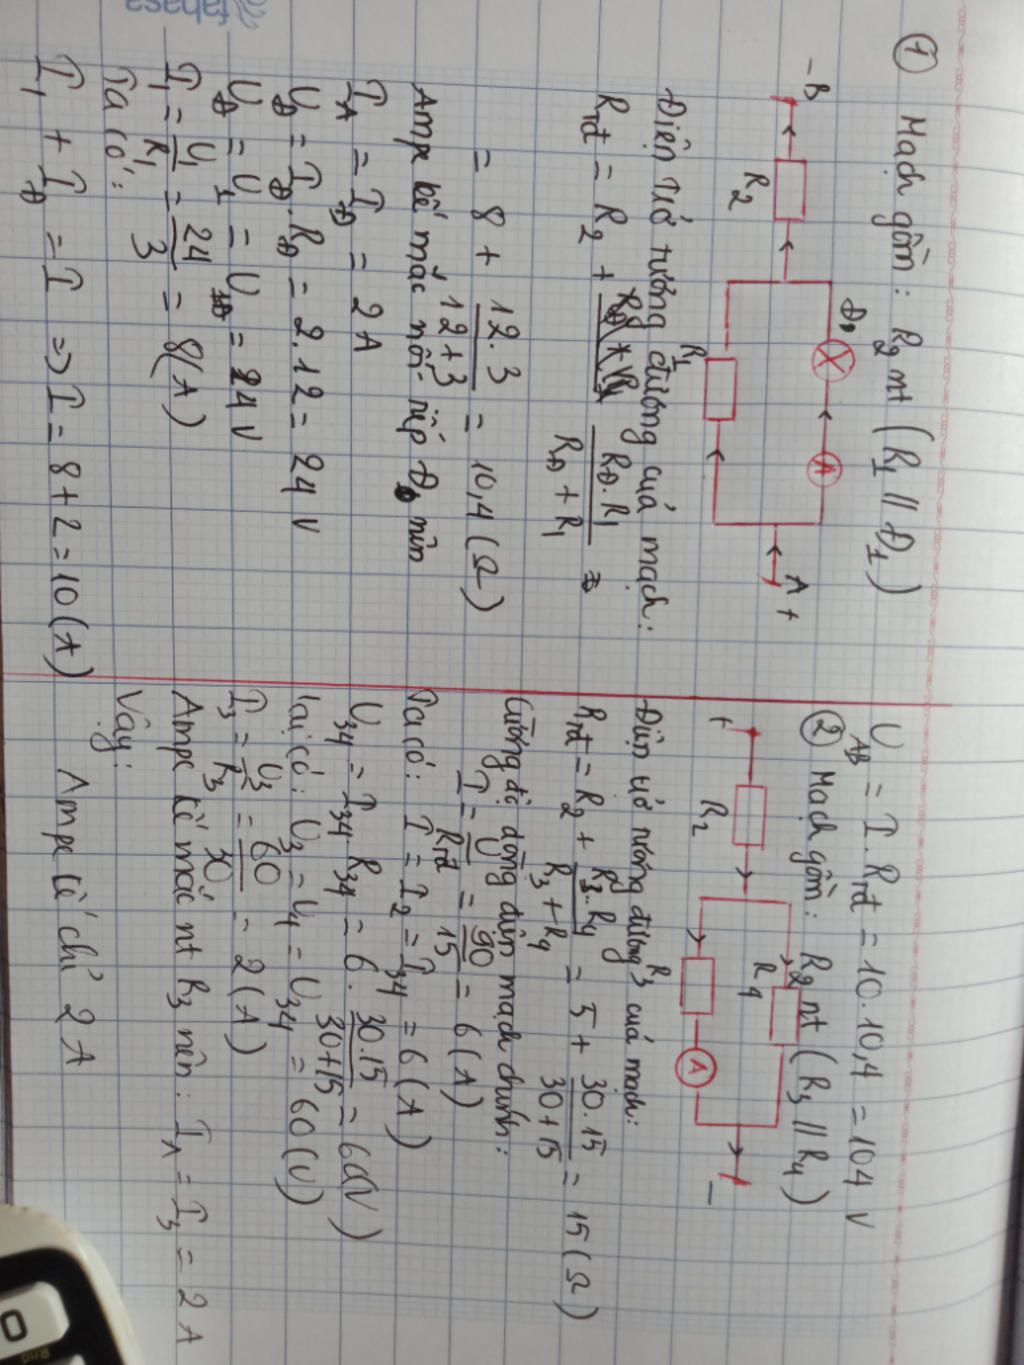 ① Mạch gồm: R2 nt (R1 // Đ1)
-B
R2
Đ1
A
R1
A +
Điện trở tương đương của mạch:
Rtđ = R2 + RĐ.R1 / RĐ + R1 =
= 8 + 12.3 / 12+3 = 10,4 (Ω)
Ampe kế mắc nối tiếp Đ nên
IA = IĐ = 2A
UĐ = IĐ.RĐ = 2.12 = 24 V
UĐ = U1 = U = 24 V
I1 = U1 / R1 = 24 / 3 = 8(A)
Ta có:
I1 + IĐ = I => I = 8+2 = 10 (A)
UAB = I.Rtđ = 10.10,4 = 104 V
② Mạch gồm: R2 nt (R3 // R4)
+
R2
R4
R3
A
-
Điện trở tương đương của mạch:
Rtđ = R2 + R3.R4 / R3+R4 = 5 + 30.15 / 30+15 = 15 (Ω)
Cường độ dòng điện mạch chính:
I = U / Rtđ = 90 / 15 = 6 (A)
Ta có: I = I2 = I34 = 6 (A)
U34 = I34.R34 = 6. 30.15 / 30+15 = 60(V)
Lại có: U3 = U4 = U34 = 60 (V)
I3 = U3 / R3 = 60 / 30 = 2 (A)
Ampe kế mắc nt R3 nên: IA = I3 = 2 A
Vậy: Ampe kế chỉ 2 A
fahasa
0
Rnd